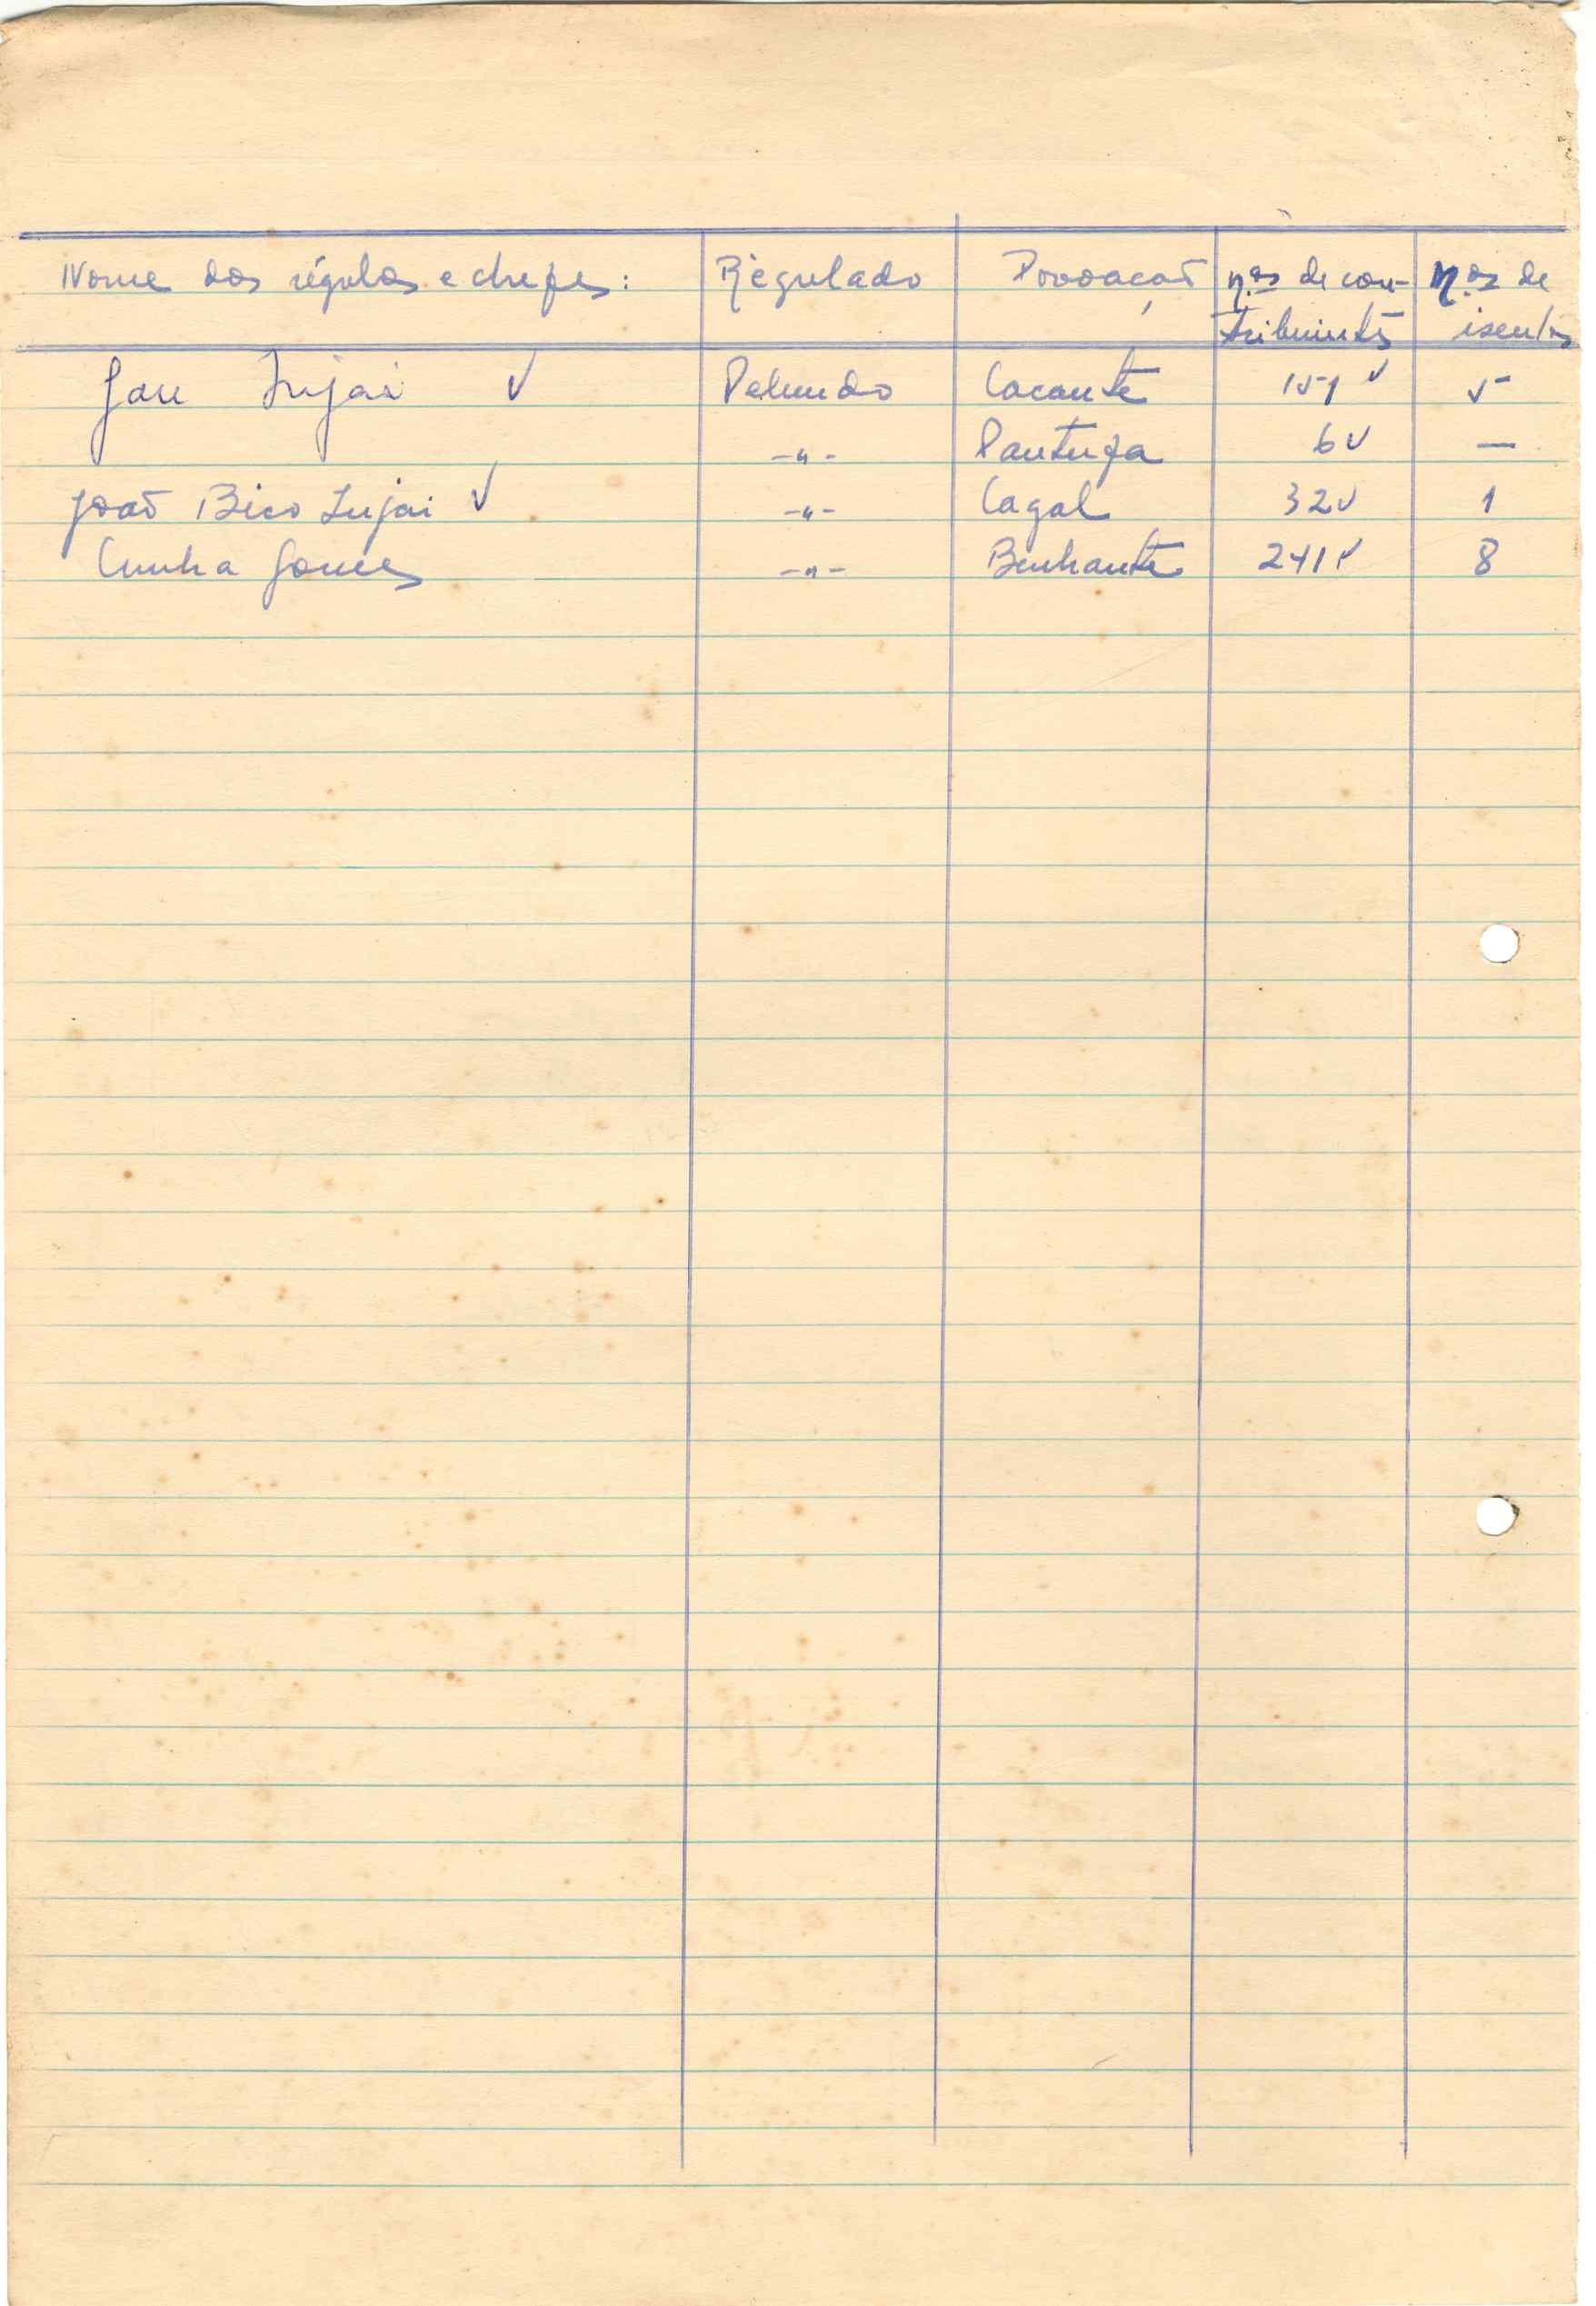 Nome dos régulos e chefes: Régulado Povoação n.os de con-
tribuintes n.os de
isentos
Jau Injai ✓ Pelundo Cacante 151 ✓ 5
-"- Pantufa 6 ✓ —
João Bico Injai ✓ -"- Cagal 32 ✓ 1
Cunha Gomes -"- Benhante 241 ✓ 8